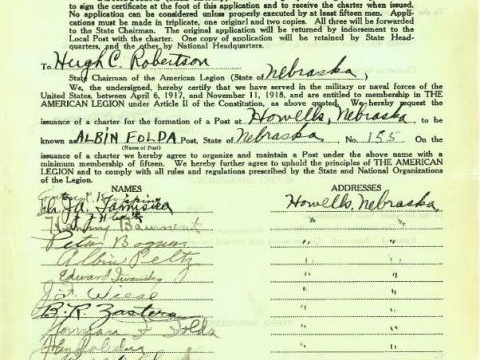 to sign the certificate at the foot of this application and to receive the charter when issued.
No application can be considered unless properly executed by at least fifteen men. Appli-
cations must be made in triplicate, one original and two copies. All three will be forwarded
to the State Chairman. The original application will be returned by indorsement to the
Local Post with the charter. One copy of application will be retained by State Head-
quarters, and the other by National Headquarters.
To Hugh C. Robertson
State Chairman of the American Legion (State of Nebraska,)
We, the undersigned, hereby certify that we have served in the military or naval forces of the
United States, between April 6, 1917, and November 11, 1918, and are entitled to membership in THE
AMERICAN LEGION under Article II of the Constitution, as above quoted. We hereby request the
issuance of a charter for the formation of a Post at Howells, Nebraska, to be
known as ALBIN FOLDA Post, State of Nebraska, No. 155 On the
(Name of Post)
issuance of the charter we hereby agree to organize and maintain a Post under the above name with a
minimum membership of fifteen. We hereby further agree to uphold the principles of THE AMERICAN
LEGION and to comply with all rules and regulations prescribed by the State and National Organizations
of the Legion.
NAMES ADDRESSES
Howells, Nebraska,
" "
Peter " "
Albin Peltz " "
Edward " "
Joe Wiese " "
B. R. Zastera " "
Herman F Folda " "
" "